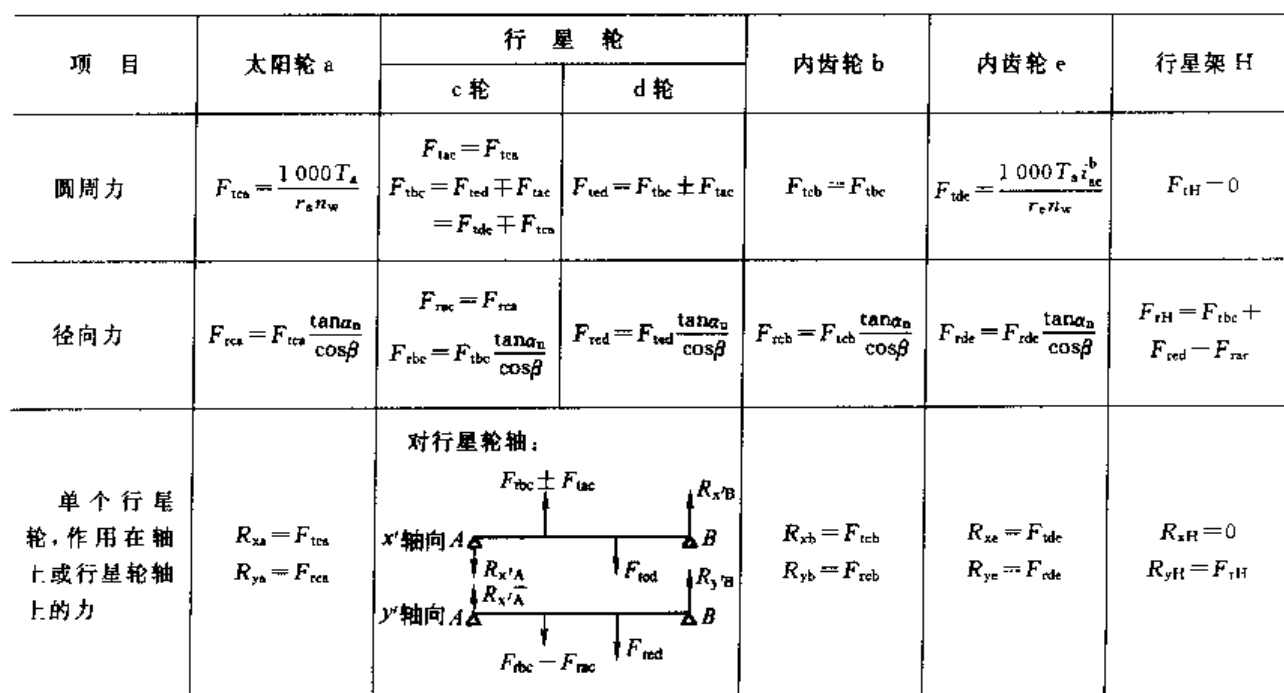 项 目
太阳轮 a
行 星 轮
c 轮
d 轮
内齿轮 b
内齿轮 e
行星架 H
圆周力
F_tca = 1 000 T_a / r_a n_w
F_tac = F_tca
F_tbc = F_ted ∓ F_tac
= F_tde ∓ F_tca
F_ted = F_tbc ± F_tac
F_tcb = F_tbc
F_tde = 1 000 T_a i_ae^b / r_e n_w
F_tH = 0
径向力
F_rca = F_tca tanα_n / cosβ
F_rac = F_rca
F_rbc = F_tbc tanα_n / cosβ
F_red = F_ted tanα_n / cosβ
F_rcb = F_tcb tanα_n / cosβ
F_rde = F_rde tanα_n / cosβ
F_rH = F_rbc +
F_red − F_rac
单 个 行 星
轮,作用在轴
上或行星轮轴
上的力
R_xa = F_tca
R_ya = F_rca
对行星轮轴:
F_rbc ± F_tac
R_x′B
x′轴向 A
B
R_x′A
F_ted
R_y′B
R_x′A
y′轴向 A
B
F_rbc − F_rac
F_red
R_xb = F_tcb
R_yb = F_rcb
R_xe = F_tde
R_ye = F_rde
R_xH = 0
R_yH = F_rH